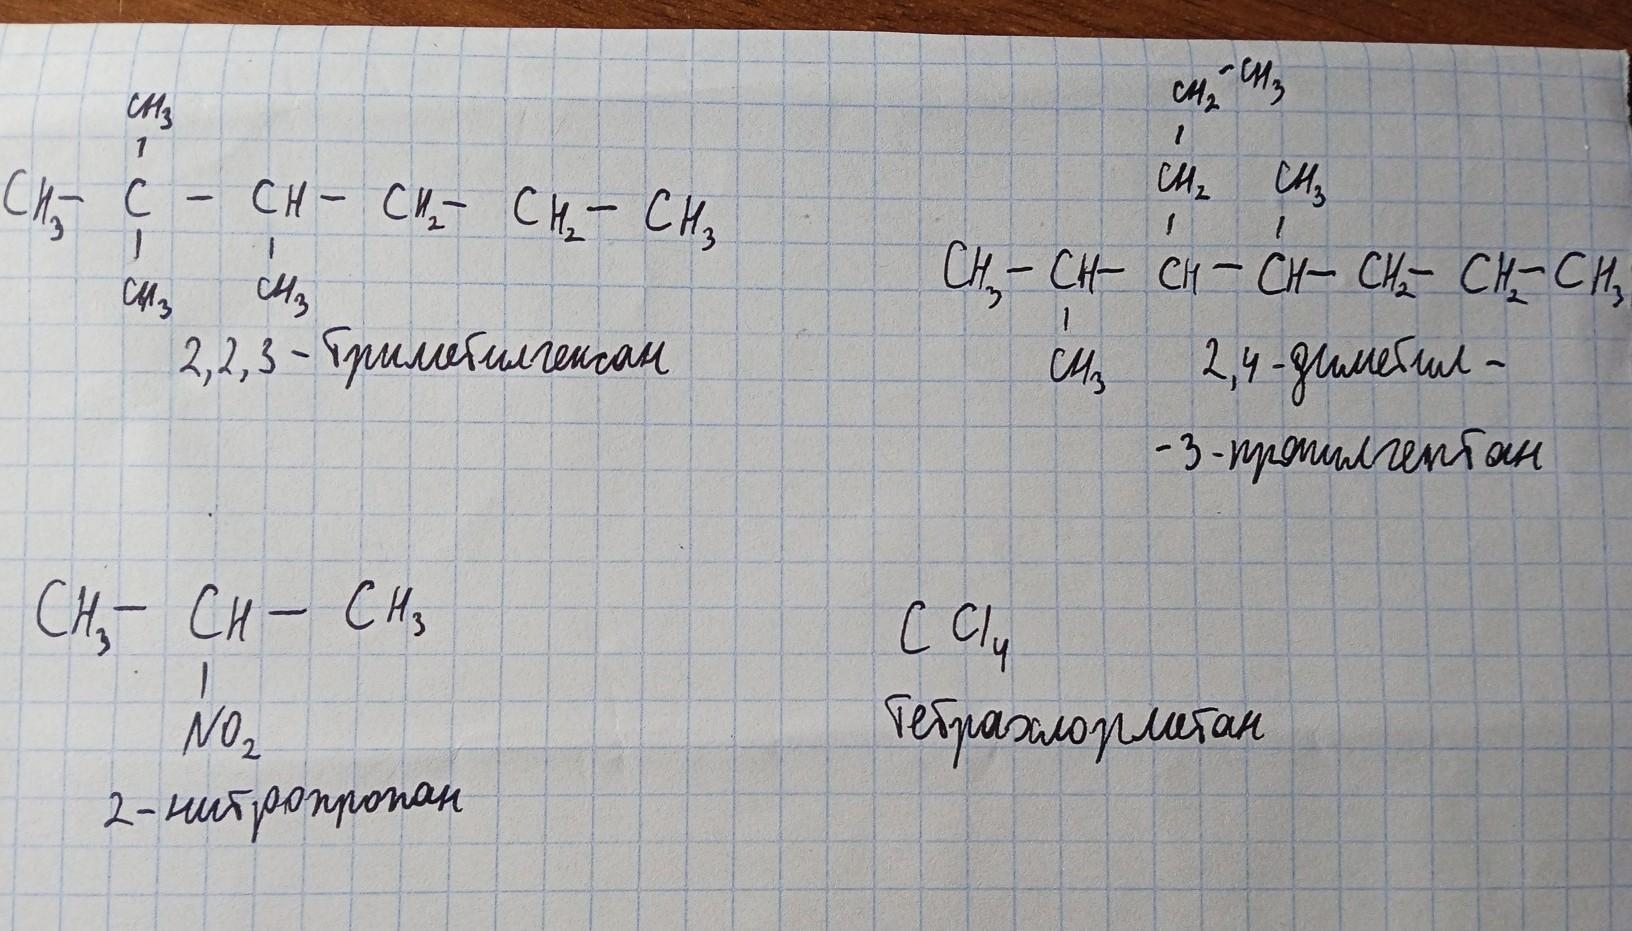 CH₃
CH₃ – C – CH – CH₂ – CH₂ – CH₃
CH₃ CH₃
2,2,3 – триметилгексан
CH₂ – CH₃
CH₂ CH₃
CH₃ – CH – CH – CH – CH₂ – CH₂ – CH₃
CH₃
2,4 – диметил –
– 3 – пропилгептан
CH₃ – CH – CH₃
NO₂
2 – нитропропан
CCl₄
Тетрахлорметан